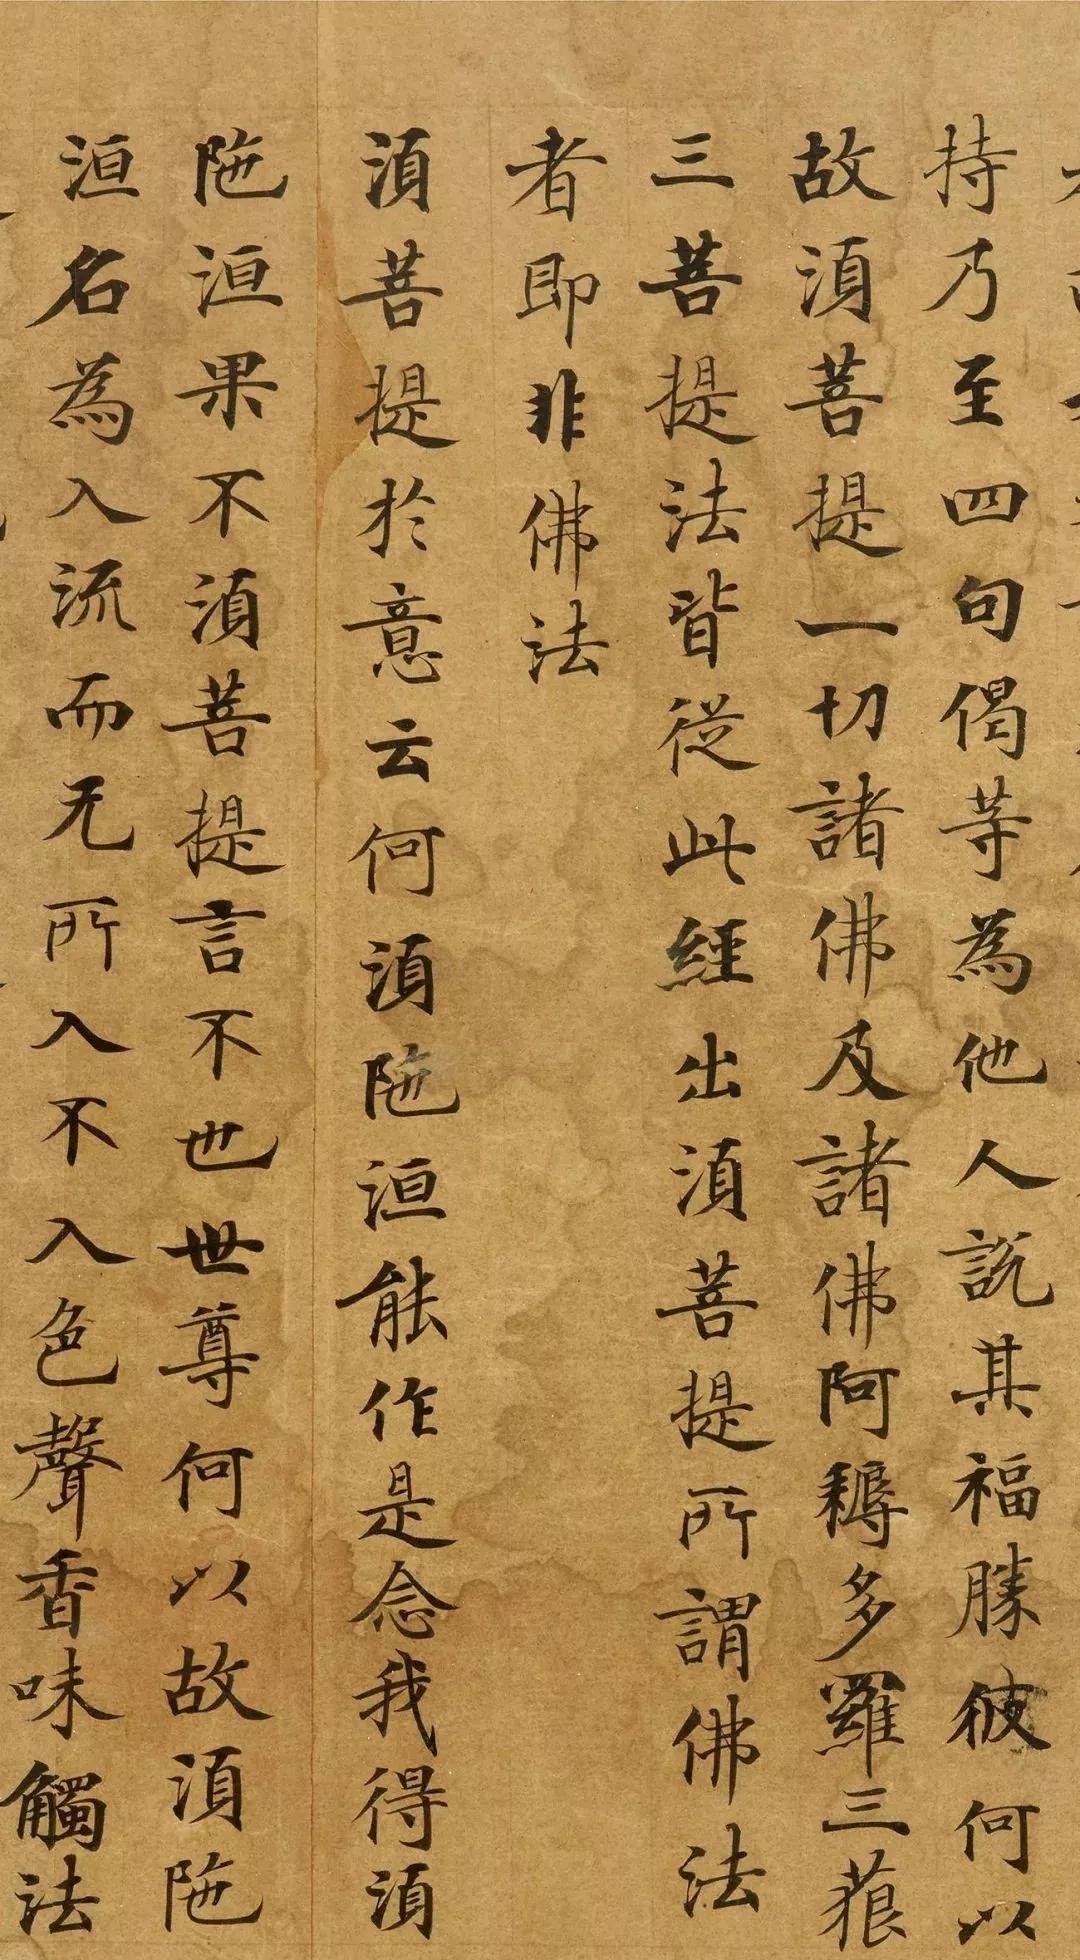 持乃至四句偈等為他人說其福勝彼何以
故須菩提一切諸佛及諸佛阿耨多羅三藐
三菩提法皆從此經出須菩提所謂佛法
者即非佛法
須菩提於意云何須陁洹能作是念我得須
陁洹果不須菩提言不也世尊何以故須陁
洹名為入流而无所入不入色聲香味觸法